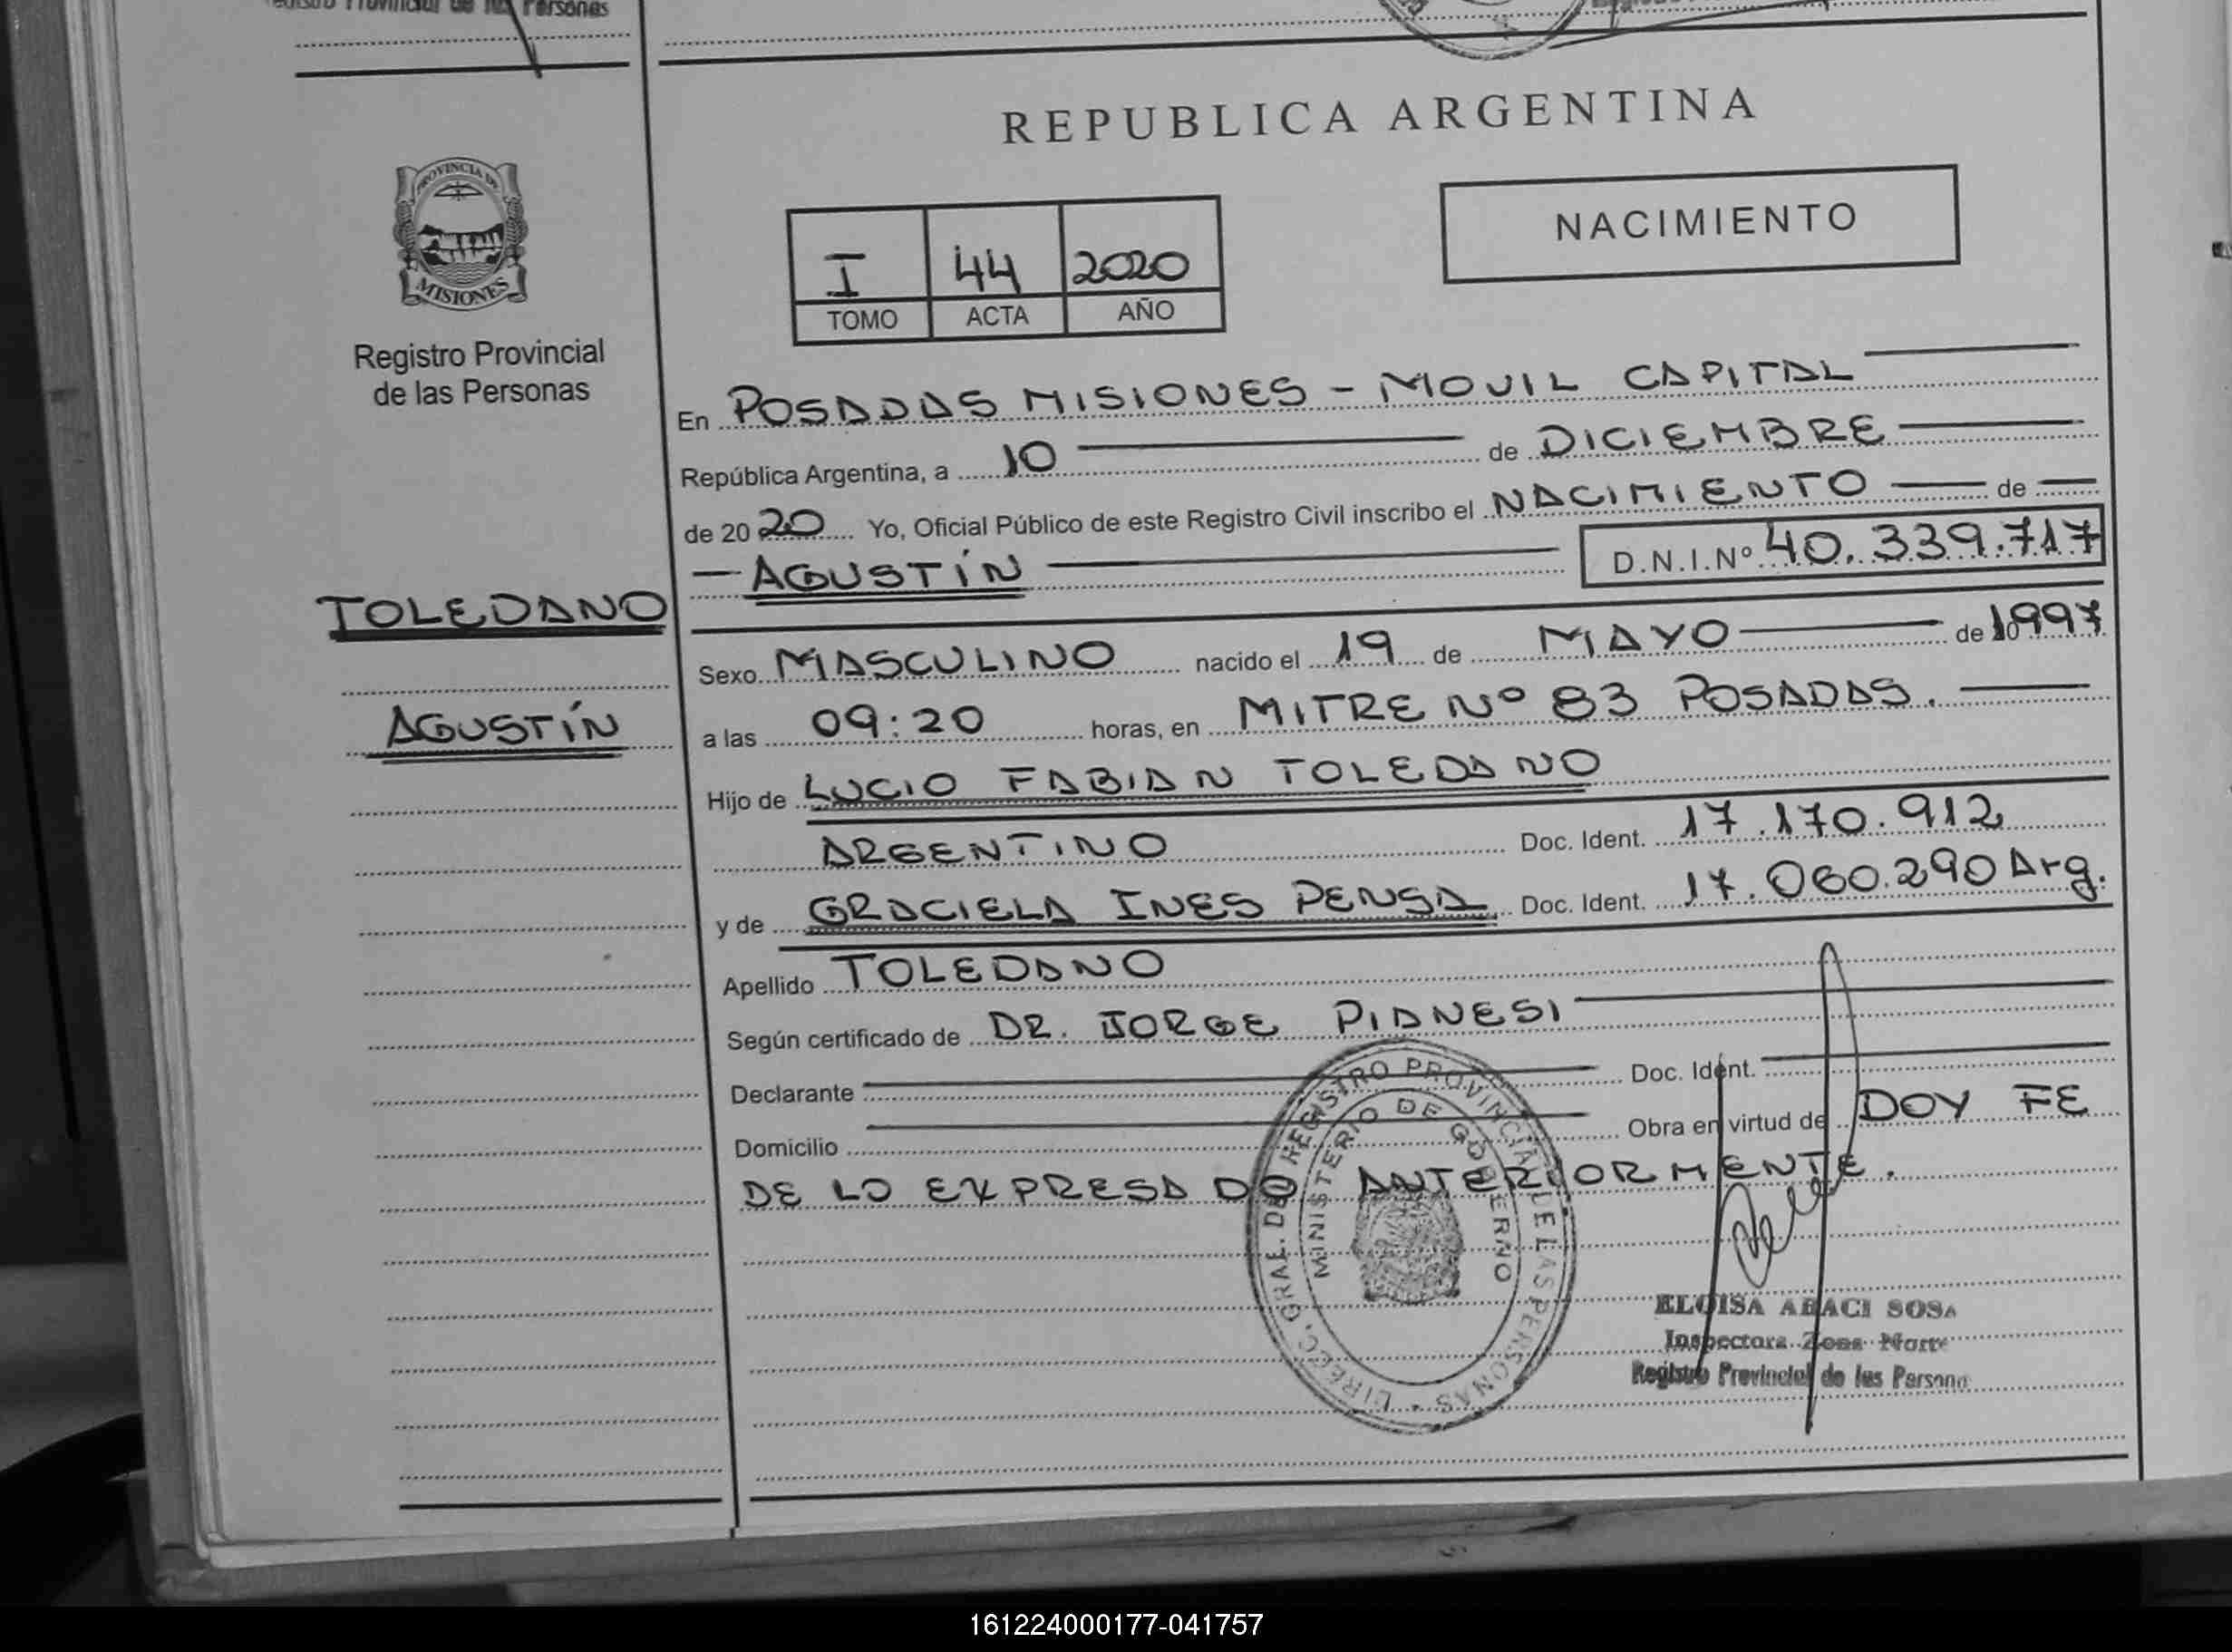 Registro Provincial de las Personas
REPUBLICA ARGENTINA
PROVINCIA DE
MISIONES
Registro Provincial
de las Personas
NACIMIENTO
I 44 2020
TOMO ACTA AÑO
En POSADAS MISIONES - MOVIL CAPITAL
República Argentina, a 10 de DICIEMBRE
de 20 20 Yo, Oficial Público de este Registro Civil inscribo el NACIMIENTO de
AGUSTÍN D.N.I.Nº 40.339.717
TOLEDANO
AGUSTÍN
Sexo MASCULINO nacido el 19 de MAYO de 1997
a las 09:20 horas, en MITRE Nº 83 POSADAS.
Hijo de LUCIO FABIAN TOLEDANO
ARGENTINO Doc. Ident. 17.170.912
y de GRACIELA INES PENSA Doc. Ident. 17.060.290 Arg.
Apellido TOLEDANO
Según certificado de DR. JORGE PIANESI
Declarante Doc. Ident.
Domicilio Obra en virtud de DOY FE
DE LO EXPRESADO ANTERIORMENTE.
DIREC. GRAL. DEL REGISTRO PROVINCIAL DE LAS PERSONAS
MINISTERIO DE GOBIERNO
ELOISA ABACI SOSA
Inspectora Zona Norte
Registro Provincial de las Persona
161224000177-041757